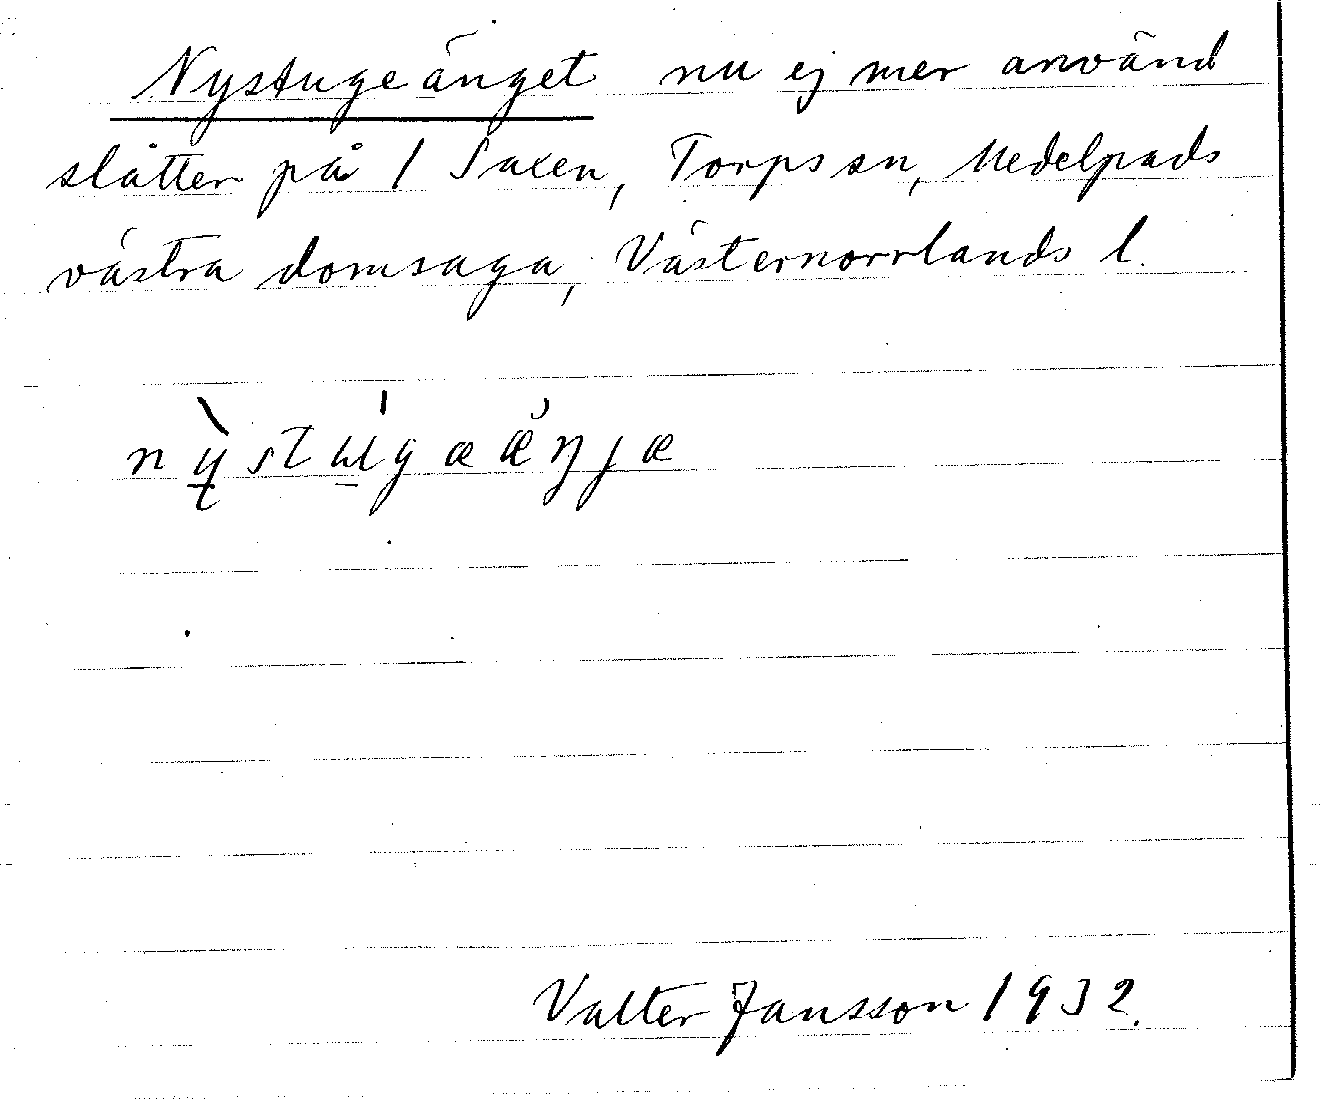 Nystugeänget nu ej mer använd
slåtter på 1 Saxen, Torps sn, Medelpads
västra domsaga, Västernorrlands l.
nỳstu̍gæǽŋjæ
Valter Jansson 1932.